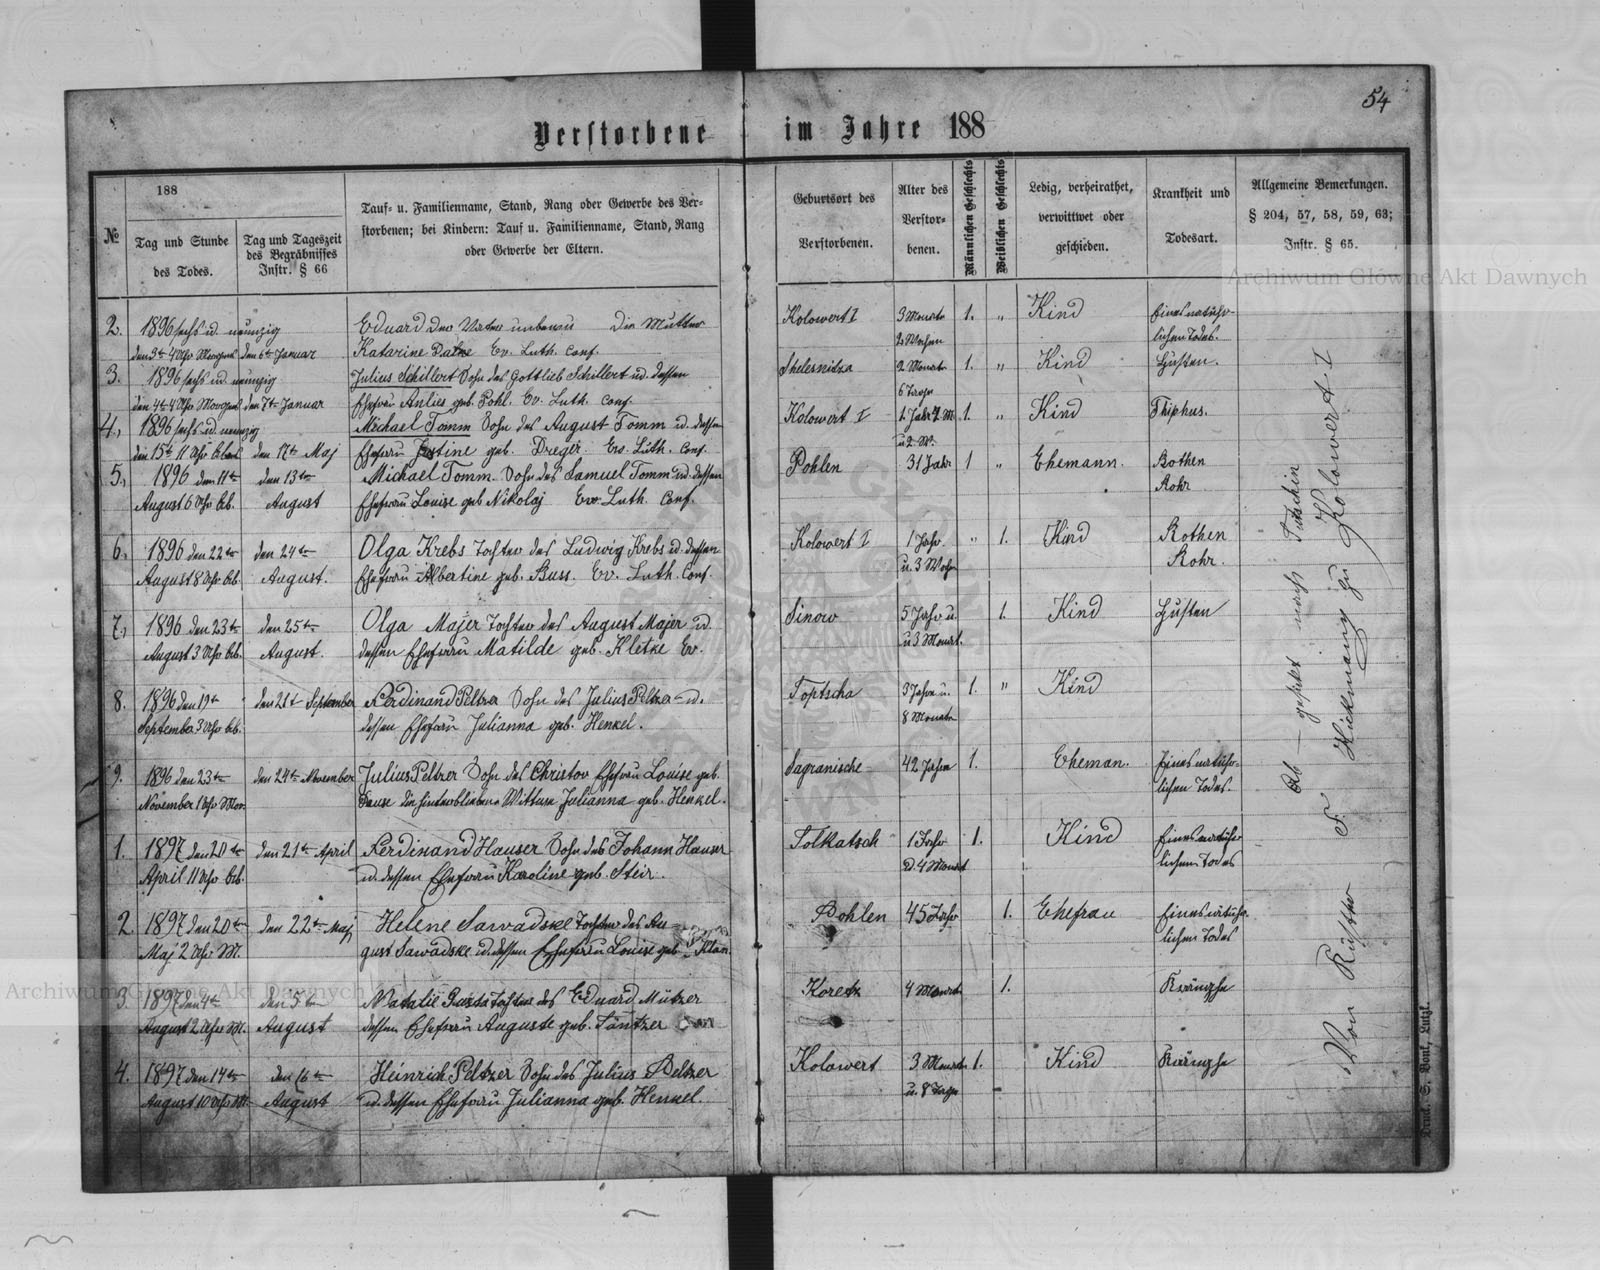 54
Verstorbene im Jahre 188
№
188
Tag und Stunde
des Todes.
Tag und Tageszeit
des Begräbnisses
Instr. § 66
Tauf- u. Familienname, Stand, Rang oder Gewerbe des Ver-
storbenen; bei Kindern: Tauf u. Familienname, Stand, Rang
oder Gewerbe der Eltern.
Geburtsort des
Verstorbenen.
Alter des
Verstor-
benen.
Männlichen Geschlechts
Weiblichen Geschlechts
Ledig, verheirathet,
verwittwet oder
geschieden.
Krankheit und
Todesart.
Allgemeine Bemerkungen.
§ 204, 57, 58, 59, 63;
Instr. § 65.
Archiwum Główne Akt Dawnych
2. 1896 sechs ud. neunzig Eduard der Vater unbenau Die Mutter Kolowert I 3 Monate 1. „ Kind Eines natühr-
den 3ten 4 Uhr Morgens den 6ten Januar Katarine Ev. Luth. Conf. 2 Wochen lichen Todes.
3. 1896 sechs ud neunzig Julius Schillert Sohn des Gottlieb Schillert ud. dessen 2 Monate 1. „ Kind Husten.
den 4ten 4 Uhr Morgens den 7ten Januar Ehefrau geb. Pohl. Ev. Luth. Conf. 6 Tage
4., 1896 sechs ud. neunzig Michael Tomm Sohn des August Tomm ud. dessen Kolowert I 1 Jahr M. 1. „ Kind Thiphus.
den 15t. 11 Uhr Abends den 17ten Maj Ehefrau Justine geb. Dreger. Ev. Luth. Conf. u 2 W.
5., 1896 den 11ten den 13ten Michael Tomm Sohn des Samuel Tomm ud. dessen Pohlen 31 Jahr 1 „ Ehemann. Rothen
August 6 Uhr Ab. August Ehefrau Louise geb Nikolaj Ev. Luth. Conf. Rohr
6., 1896 den 22ten den 24ten Olga Krebs Tochter des Ludwig Krebs ud. dessen Kolowert I 1 Jahr „ 1. Kind Rothen
August 8 Uhr Ab. August. Ehefrau Albertine geb. Buss. Ev. Luth. Conf. u. 3 Woch Rohr.
7., 1896 den 23ten den 25ten Olga Majer Tochter des August Majer ud. Sinow 5 Jahr u. 1. Kind Husten
August 3 Uhr Ab. August. dessen Ehefrau Matilde geb. Kletke Ev. u 3 Monat.
8. 1896 den 19ten den 21t September Ferdinand Peltzer Sohn des Julius Peltzer ud. Toptscha 3 Jahre u. 1. „ Kind
September 3 Uhr Ab. dessen Ehefrau Julianna geb. Henkel. 8 Monate
9. 1896 den 23ten den 24ten November Julius Peltzer Sohn des Christov Ehefrau Louise geb. Sagranische 42 Jahre 1. Eheman. Eines natühr-
November 1 Uhr Mor. die hinterbliebene Wittwe Julianna geb. Henkel. lichen Todes.
1. 1897 den 20ten den 21ten April Ferdinand Hauser Sohn des Johann Hauser Solkatsch 1 Jahr 1. Kind Eines natühr-
April 11 Uhr Ab. ud. dessen Ehefrau Karoline geb. Steir. 4 Monat lichen Todes
2. 1897 den 20ten den 22ten Maj Helene Sawadske Tochter des Au- Pohlen 45 Jahr 1. Ehefrau Eines natühr-
Maj 2 Uhr M. gust Sawadske ud. dessen Ehefrau Louise geb. lichen Todes
3 1897 den 4ten den 5ten Natalie Tochter des Eduard Mützer Koretz 4 Monat 1. Krämphe
August 2 Uhr M. August dessen Ehefrau Auguste geb. Säntzer
4. 1897 den 14ten den 16ten Heinrich Peltzer Sohn des Julius Peltzer Kolowert 3 Monate 1. Kind Krämphe
August 10 Uhr M. August ud. dessen Ehefrau Julianna geb. Henkel. u. 8 Tage
Von Küster F. Hickmann zu Kolowert. I
nach Tutschin
Archiwum Główne Akt Dawnych
Druck. S. Bont, Lutzk.